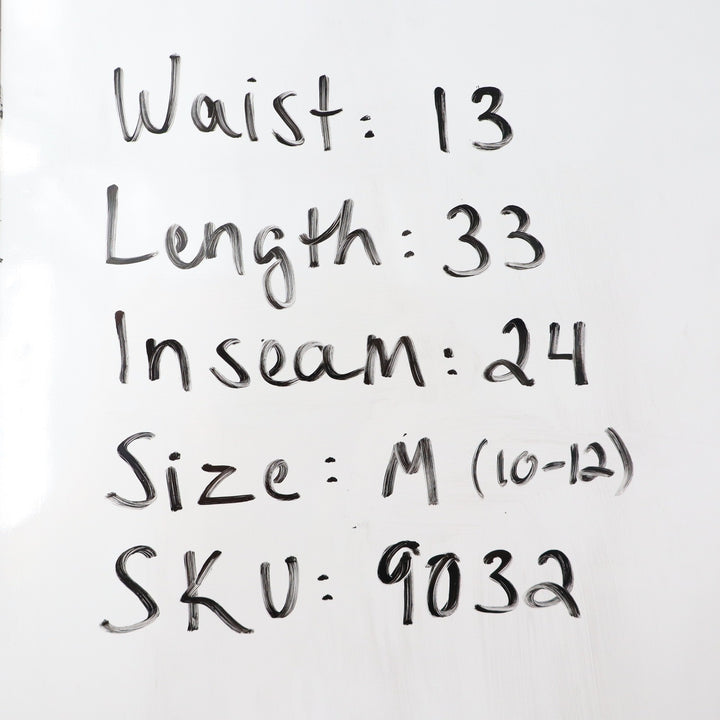 Waist: 13
Length: 33
Inseam: 24
Size: M (10-12)
SKU: 9032